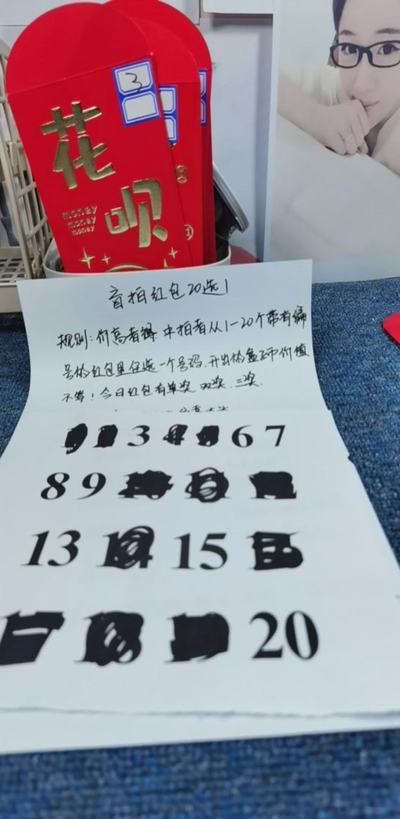 3
花
呗
money
money
money
盲拍红包20选1
规则:价高者得 中拍者从1-20个带有编
号的红包里任选一个号码,开出的盖子币价值
不等!今日红包有单奖 双奖 三奖
3 6 7
8 9
13 15
20